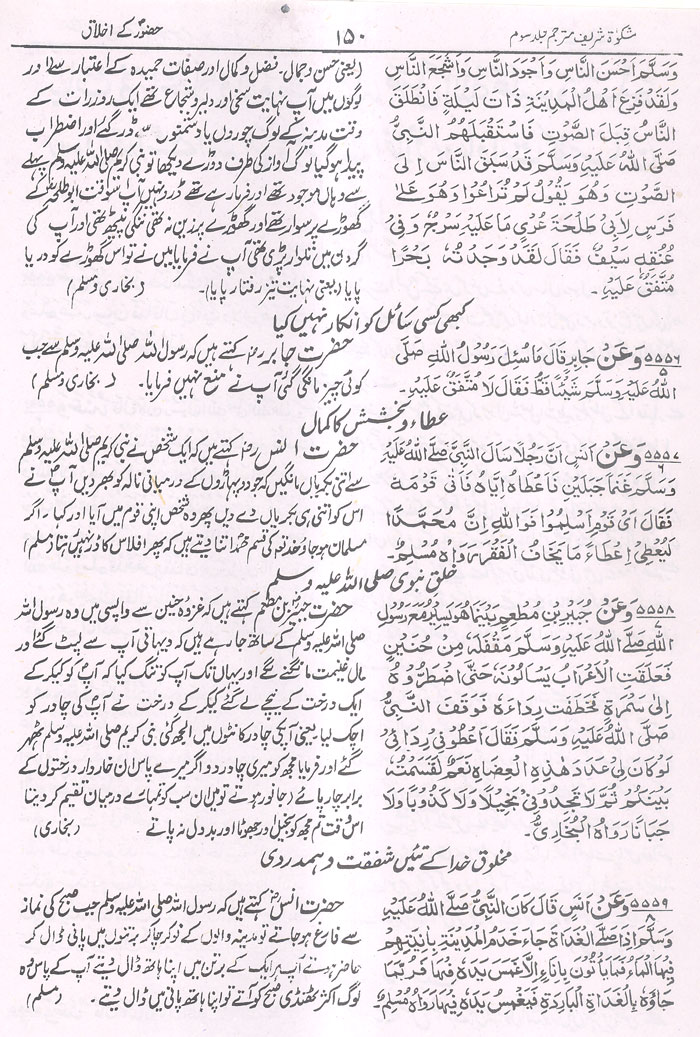 مشکوٰۃ شریف مترجم جلد سوم
۱۵۰
حضورؐ کے اخلاق
وَسَلَّمَ اَحْسَنَ النَّاسِ وَاَجْوَدَ النَّاسِ وَاَشْجَعَ النَّاسِ
وَلَقَدْ فَزِعَ اَهْلُ الْمَدِيْنَةِ ذَاتَ لَيْلَةٍ فَانْطَلَقَ
النَّاسُ قِبَلَ الصَّوْتِ فَاسْتَقْبَلَهُمُ النَّبِيُّ
صَلَّى اللهُ عَلَيْهِ وَسَلَّمَ قَدْ سَبَقَ النَّاسَ اِلَى
الصَّوْتِ وَهُوَ يَقُوْلُ لَمْ تُرَاعُوْا وَهُوَ عَلٰى
فَرَسٍ لِاَبِيْ طَلْحَةَ عُرْيٍ مَا عَلَيْهِ سَرْجٌ وَفِيْ
عُنُقِهٖ سَيْفٌ فَقَالَ لَقَدْ وَجَدْتُهٗ بَحْرًا
مُتَّفَقٌ عَلَيْهِ۔
(یعنی حسن و جمال۔ فضل و کمال اور صفات حمیدہ کے اعتبار سے) اور
لوگوں میں آپ نہایت سخی اور دلیر و شجاع تھے ایک روز رات کے
وقت مدینہ کے لوگ چوروں یا دشمنوں سے ڈر گئے اور اضطراب
پیدا ہوگیا لوگ آواز کی طرف دوڑے دیکھا تو نبی کریم صلی اللہ علیہ وسلم پہلے
سے وہاں موجود تھے اور فرما رہے تھے ڈرو نہیں آپ اسوقت ابو طلحہؓ کے
گھوڑے پر سوار تھے اور گھوڑے پر زین نہ تھی ننگی پیٹھ تھی اور آپ کی
گردن میں تلوار پڑی تھی آپ نے فرمایا میں نے تو اس گھوڑے کو دریا
پایا (یعنی نہایت تیز رفتار پایا)۔ (بخاری و مسلم)
کبھی کسی سائل کو انکار نہیں کیا
۵۵۵۶ وَعَنْ جَابِرٍ قَالَ مَا سُئِلَ رَسُوْلُ اللهِ صَلَّى
۵
اللهُ عَلَيْهِ وَسَلَّمَ شَيْئًا قَطُّ فَقَالَ لَا مُتَّفَقٌ عَلَيْهِ۔
حضرت جابر رضؓ کہتے ہیں کہ رسول اللہ صلی اللہ علیہ وسلم سے جب
کوئی چیز مانگی گئی آپ نے منع نہیں فرمایا۔ (بخاری و مسلم)
عطاء و بخشش کا کمال
۵۵۵۷ وَعَنْ اَنَسٍ اَنَّ رَجُلًا سَاَلَ النَّبِيَّ صَلَّى اللهُ عَلَيْهِ
۶
وَسَلَّمَ غَنَمًا جَبَلَيْنِ فَاَعْطَاهُ اِيَّاهُ فَاَتٰى قَوْمَهٗ
فَقَالَ اَيْ قَوْمِ اَسْلِمُوْا فَوَاللهِ اِنَّ مُحَمَّدًا
لَيُعْطِيْ اِعْطَاءً مَا يَخَافُ الْفَقْرَ رَوَاهُ مُسْلِمٌ۔
حضرت انس رضؓ کہتے ہیں کہ ایک شخص نے نبی کریم صلی اللہ علیہ وسلم
سے اتنی بکریاں مانگیں کہ جو دو پہاڑوں کے درمیانی نالہ کو بھر دیں آپؐ نے
اس کو اتنی ہی بکریاں دے دیں پھر وہ شخص اپنی قوم میں آیا اور کہا۔ اگر
مسلمان ہو جاؤ خدا کی قسم محمدؐ اتنا دیتے ہیں کہ پھر افلاس کا ڈر نہیں رہتا (مسلم)
خلق نبوی صلی اللہ علیہ وسلم
۵۵۵۸ وَعَنْ جُبَيْرِ بْنِ مُطْعِمٍ بَيْنَمَا هُوَ يَسِيْرُ مَعَ رَسُوْلِ
۷
اللهِ صَلَّى اللهُ عَلَيْهِ وَسَلَّمَ مَقْفَلَهٗ مِنْ حُنَيْنٍ
فَعَلِقَتِ الْاَعْرَابُ يَسْاَلُوْنَهٗ حَتَّى اضْطَرُّوْهُ
اِلٰى سَمُرَةٍ فَخَطِفَتْ رِدَاءَهٗ فَوَقَفَ النَّبِيُّ
صَلَّى اللهُ عَلَيْهِ وَسَلَّمَ فَقَالَ اَعْطُوْنِيْ رِدَائِيْ
لَوْ كَانَ لِيْ عَدَدَ هٰذِهِ الْعِضَاهِ نَعَمٌ لَقَسَمْتُهٗ
بَيْنَكُمْ ثُمَّ لَا تَجِدُوْنِيْ بَخِيْلًا وَلَا كَذُوْبًا وَلَا
جَبَانًا رَوَاهُ الْبُخَارِيُّ۔
حضرت جبیرؓ بن مطعم کہتے ہیں کہ غزوہ حنین سے واپسی میں وہ رسول اللہ
صلی اللہ علیہ وسلم کے ساتھ جا رہے ہیں کہ دیہاتی آپ سے لپٹ گئے اور
مال غنیمت مانگنے لگے اور یہاں تک آپ کو تنگ کیا کہ آپؐ کو کیکر کے
ایک درخت کے نیچے لے گئے کیکر کے درخت نے آپؐ کی چادر کو
اچک لیا یعنی آپکی چادر کانٹوں میں الجھ گئی نبی کریم صلی اللہ علیہ وسلم ٹھہر
گئے اور فرمایا مجھ کو میری چادر دو اگر میرے پاس ان خاردار درختوں کے
برابر چارپائے (جانور) ہوتے تو میں ان سب کو تمہارے درمیان تقسیم کر دیتا
اس وقت تم مجھ کو بخیل اور جھوٹا اور بد دل نہ پاتے (بخاری)
مخلوق خدا کے تئیں شفقت و ہمدردی
۵۵۵۹ وَعَنْ اَنَسٍ قَالَ كَانَ النَّبِيُّ صَلَّى اللهُ عَلَيْهِ
۸
وَسَلَّمَ اِذَا صَلَّى الْغَدَاةَ جَاءَ خَدَمُ الْمَدِيْنَةِ بِاٰنِيَتِهِمْ
فِيْهَا الْمَاءُ فَمَا يَاْتُوْنَ بِاِنَاءٍ اِلَّا غَمَسَ يَدَهٗ فِيْهَا فَرُبَّمَا
جَاؤُهٗ بِالْغَدَاةِ الْبَارِدَةِ فَيَغْمِسُ يَدَهٗ فِيْهَا رَوَاهُ مُسْلِمٌ۔
حضرت انسؓ کہتے ہیں کہ رسول اللہ صلی اللہ علیہ وسلم جب صبح کی نماز
سے فارغ ہو جاتے تو مدینہ والوں کے نوکر چاکر برتنوں میں پانی ڈال کر
حاضر ہوتے آپ ہر ایک کے برتن میں اپنا ہاتھ ڈال دیتے آپ کے پاس وہ
لوگ اکثر ٹھنڈی صبح کو آتے تو اپنا ہاتھ پانی میں ڈال دیتے۔ (مسلم)